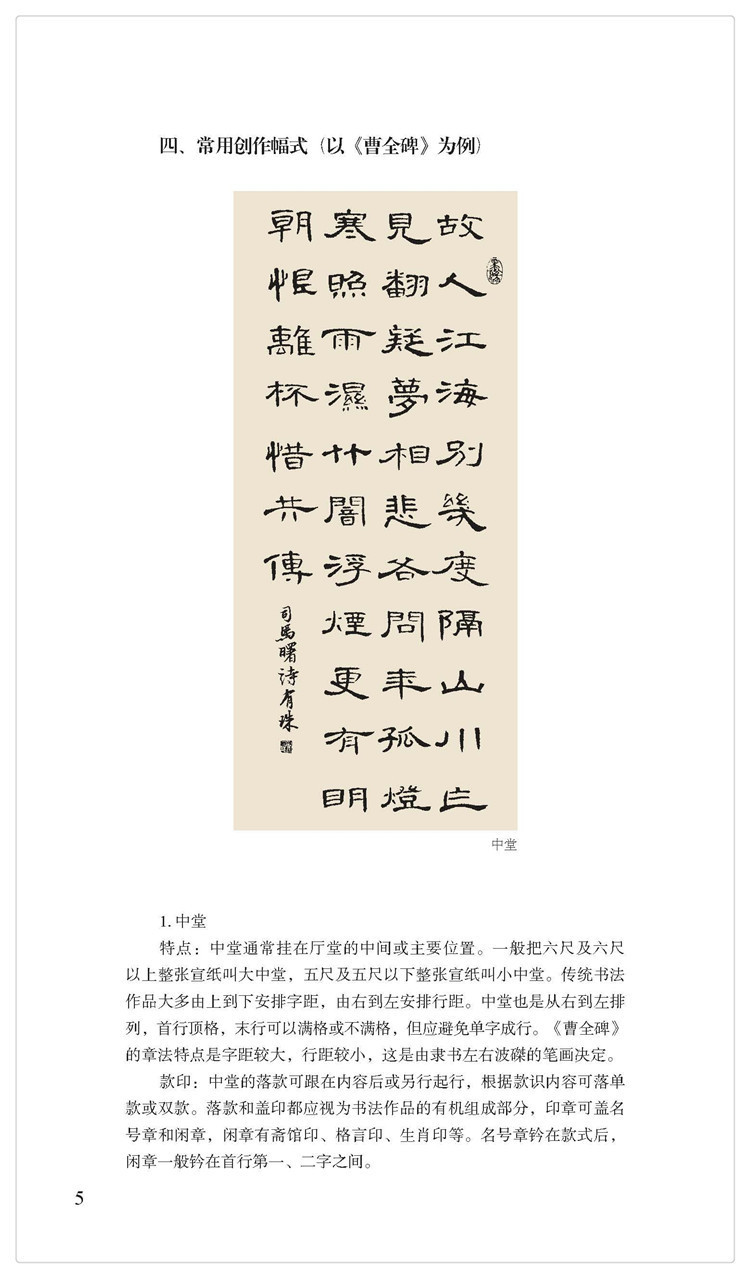 四、常用创作幅式（以《曹全碑》为例）
故人江海別幾度隔山川乍
見翻疑夢相悲各問年孤燈
寒照雨濕竹闇浮煙更有明
朝恨離杯惜共傳
司馬曙詩有珠
中堂
1. 中堂
特点：中堂通常挂在厅堂的中间或主要位置。一般把六尺及六尺
以上整张宣纸叫大中堂，五尺及五尺以下整张宣纸叫小中堂。传统书法
作品大多由上到下安排字距，由右到左安排行距。中堂也是从右到左排
列，首行顶格，末行可以满格或不满格，但应避免单字成行。《曹全碑》
的章法特点是字距较大，行距较小，这是由隶书左右波磔的笔画决定。
款印：中堂的落款可跟在内容后或另行起行，根据款识内容可落单
款或双款。落款和盖印都应视为书法作品的有机组成部分，印章可盖名
号章和闲章，闲章有斋馆印、格言印、生肖印等。名号章钤在款式后，
闲章一般钤在首行第一、二字之间。
5